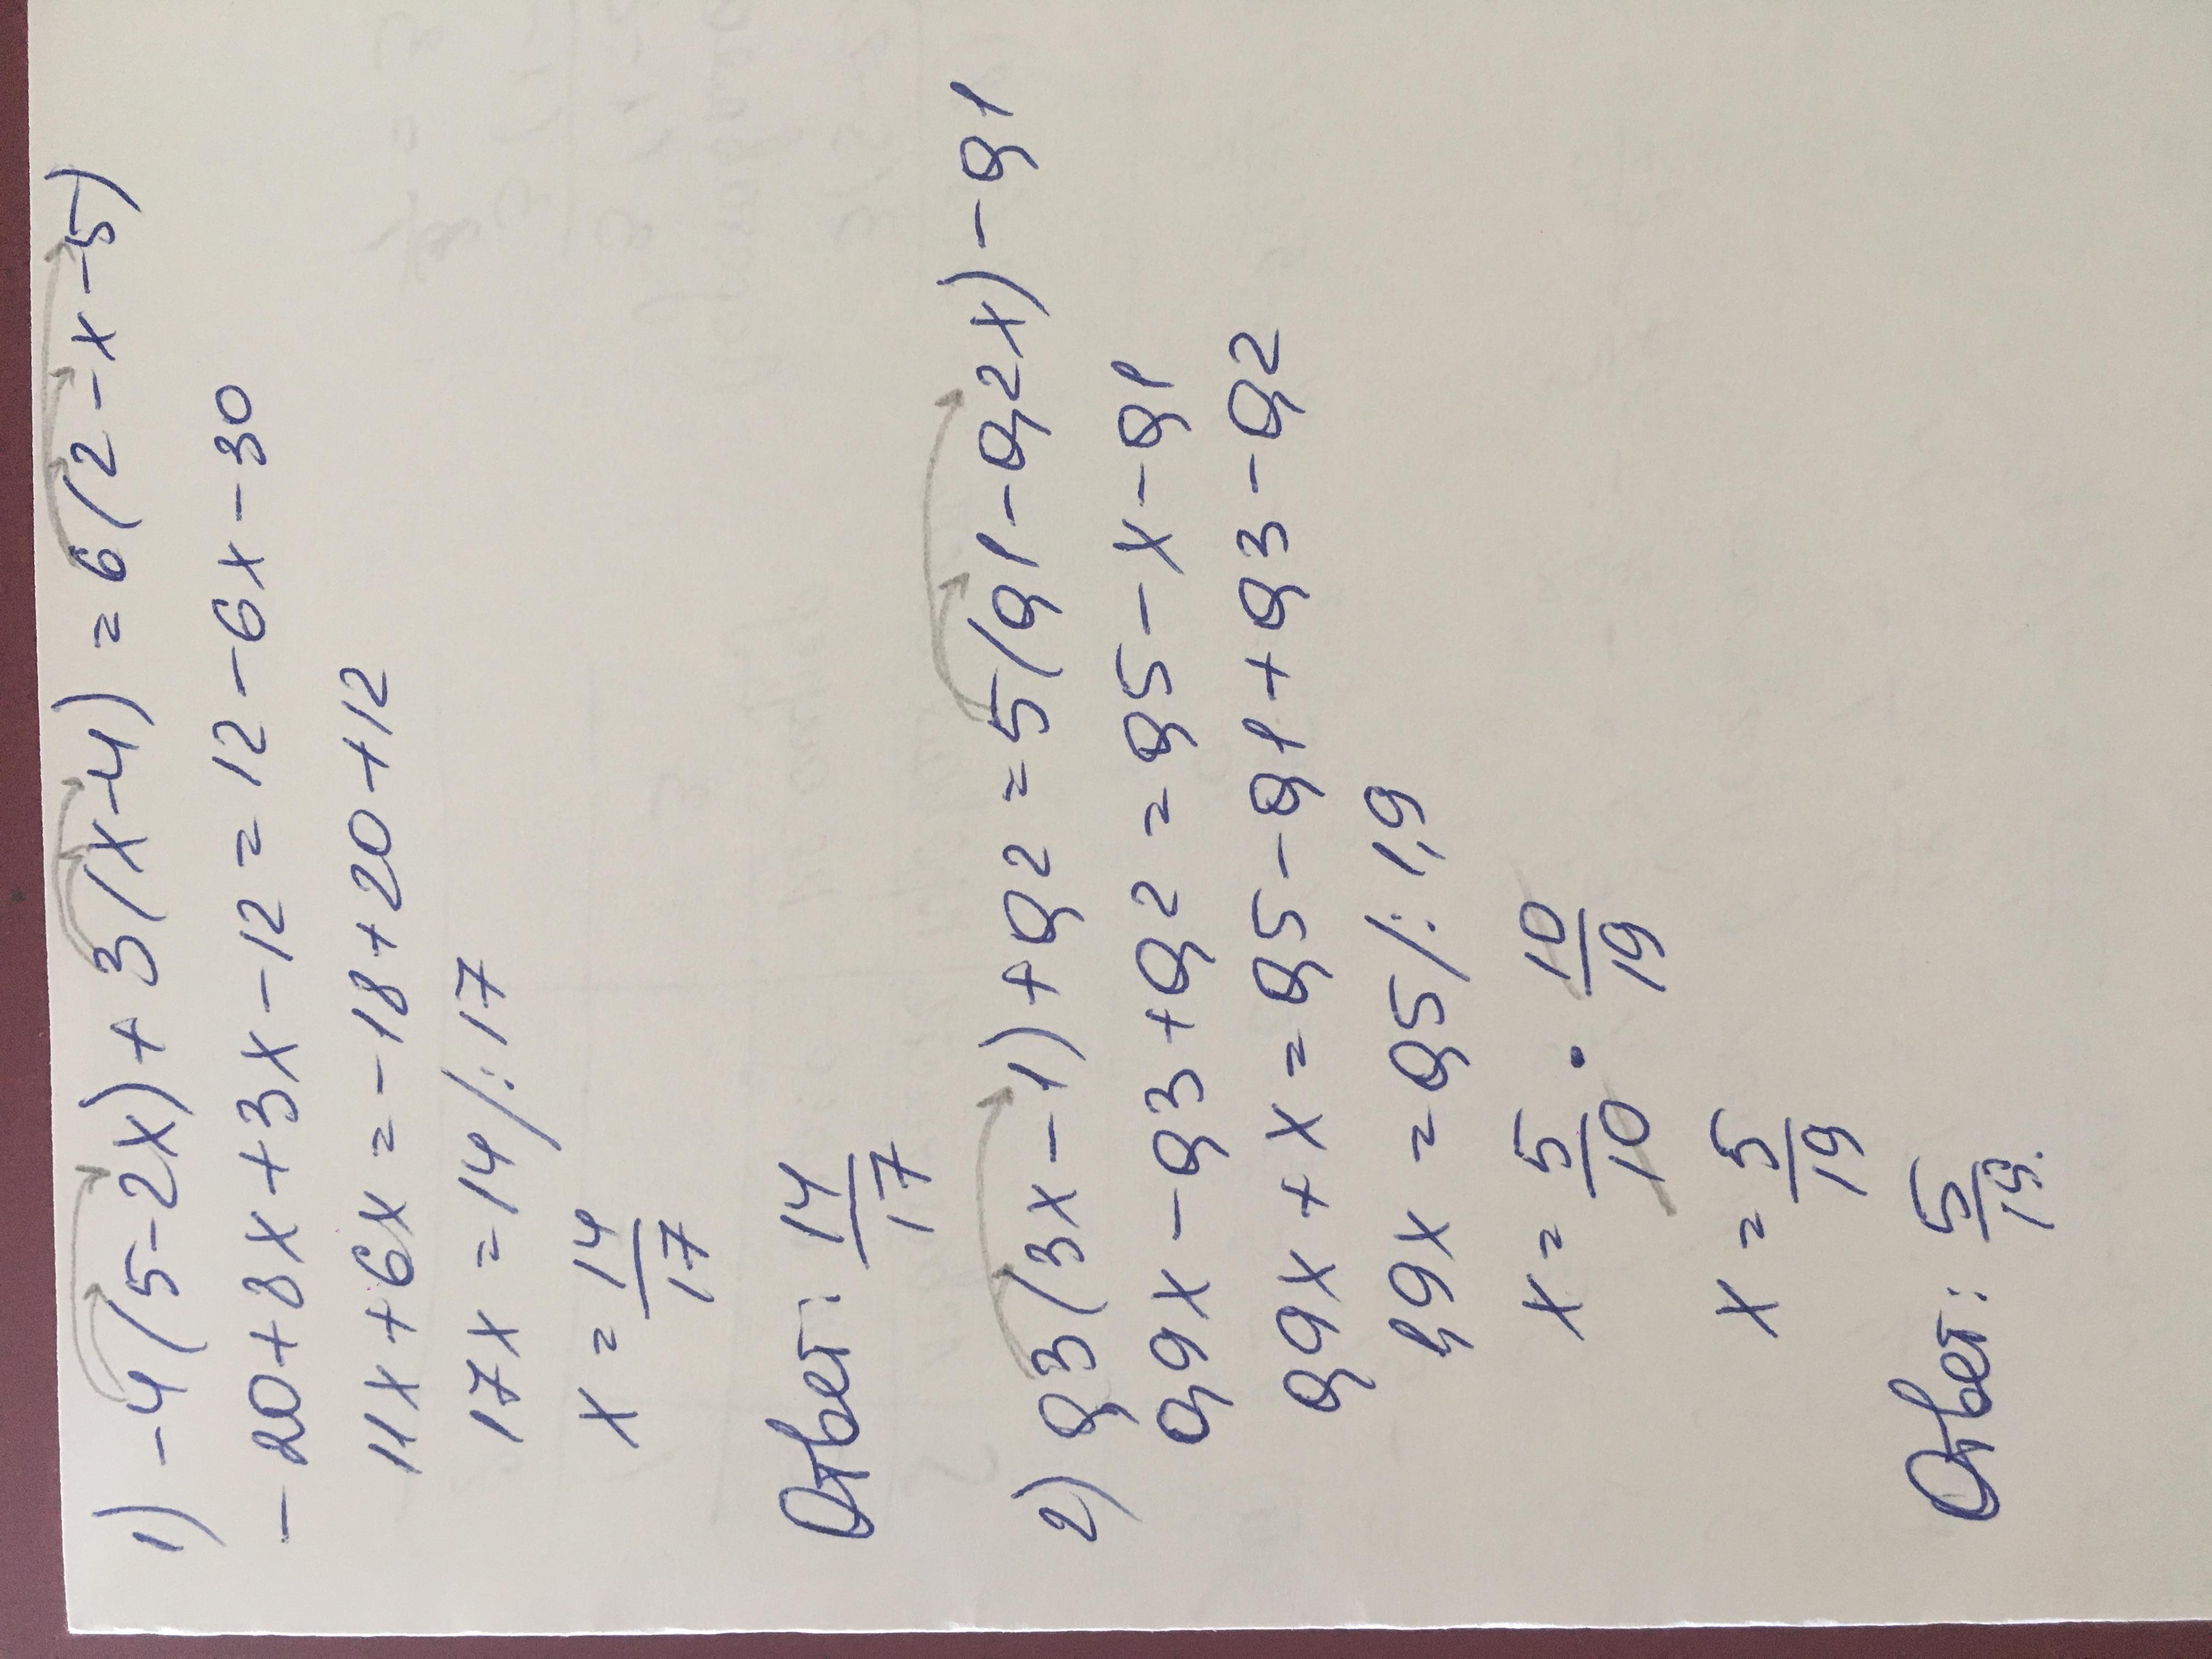 1) -4(5-2x)+3(x-4)=6(2-x-5)
-20+8x+3x-12=12-6x-30
11x+6x=-18+20+12
17x=14/:17
x=14/17
Ответ: 14/17
2) 0,3(3x-1)+0,2=5(0,1-0,2x)-0,1
0,9x-0,3+0,2=0,5-x-0,1
0,9x+x=0,5-0,1+0,3-0,2
1,9x=0,5/:1,9
x=5/10•10/19
x=5/19
Ответ: 5/19.